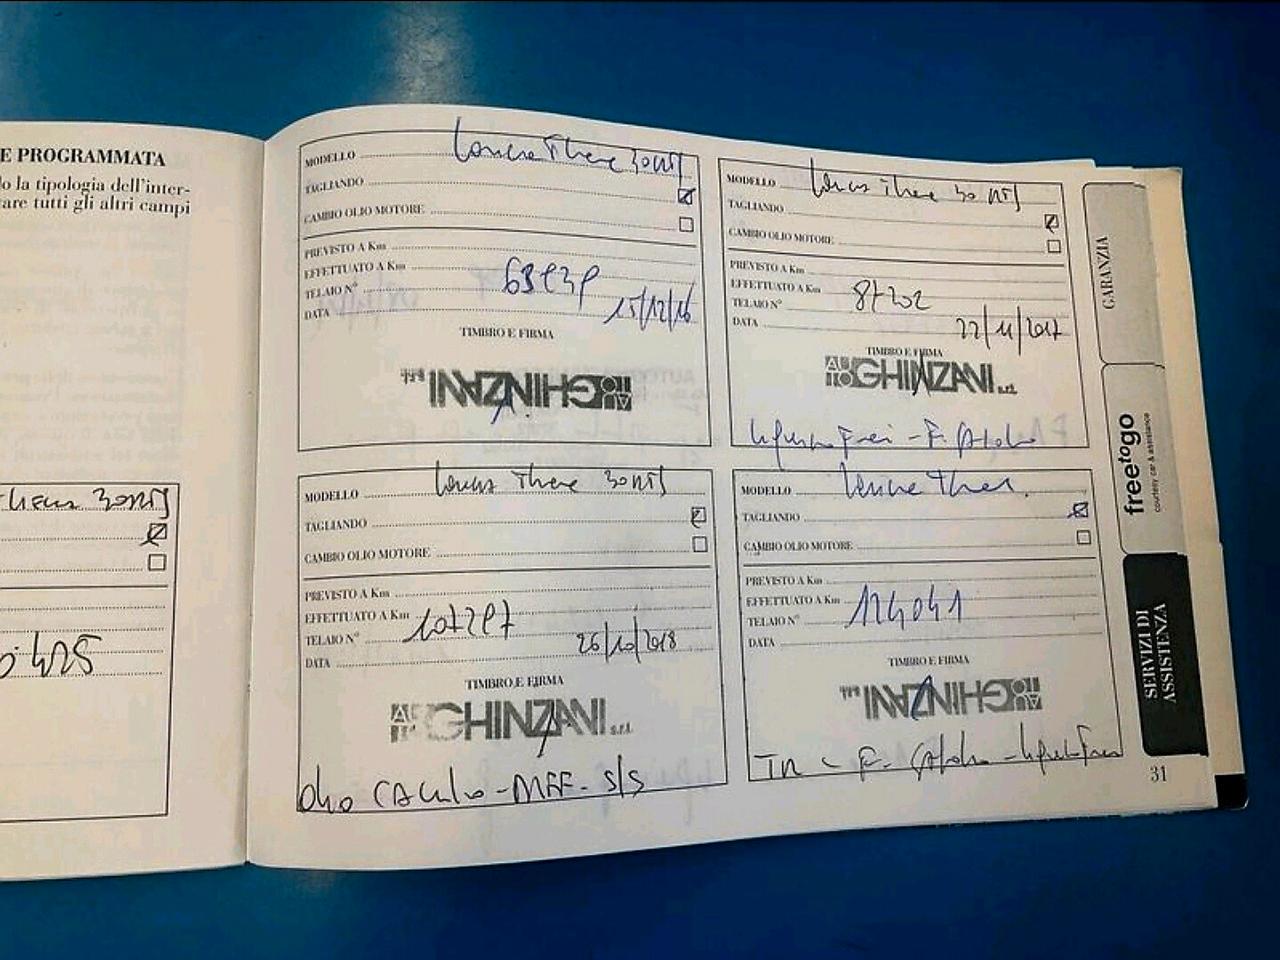 E PROGRAMMATA
do la tipologia dell'inter-
are tutti gli altri campi
30 MTJ
425
MODELLO Thene 30 MTJ
TAGLIANDO
CAMBIO OLIO MOTORE
PREVISTO A Km
EFFETTUATO A Km
TELAIO N°
DATA 15/12/16
TIMBRO E FIRMA
AUTO GHINZANI s.r.l.
MODELLO Thene 30 MTJ
TAGLIANDO
CAMBIO OLIO MOTORE
PREVISTO A Km
EFFETTUATO A Km
TELAIO N° 87202
DATA 22/11/2017
TIMBRO E FIRMA
AUTO GHINZANI s.r.l.
MODELLO Thene 30 MTJ
TAGLIANDO
CAMBIO OLIO MOTORE
PREVISTO A Km
EFFETTUATO A Km
TELAIO N° 107297
DATA 26/10/2018
TIMBRO E FIRMA
AUTO GHINZANI s.r.l.
Olio CAMbio - DIFF - S/S
MODELLO
TAGLIANDO
CAMBIO OLIO MOTORE
PREVISTO A Km
EFFETTUATO A Km 124041
TELAIO N°
DATA
TIMBRO E FIRMA
AUTO GHINZANI s.r.l.
31
GARANZIA
freetogo
courtesy car & assistance
SERVIZI DI
ASSISTENZA